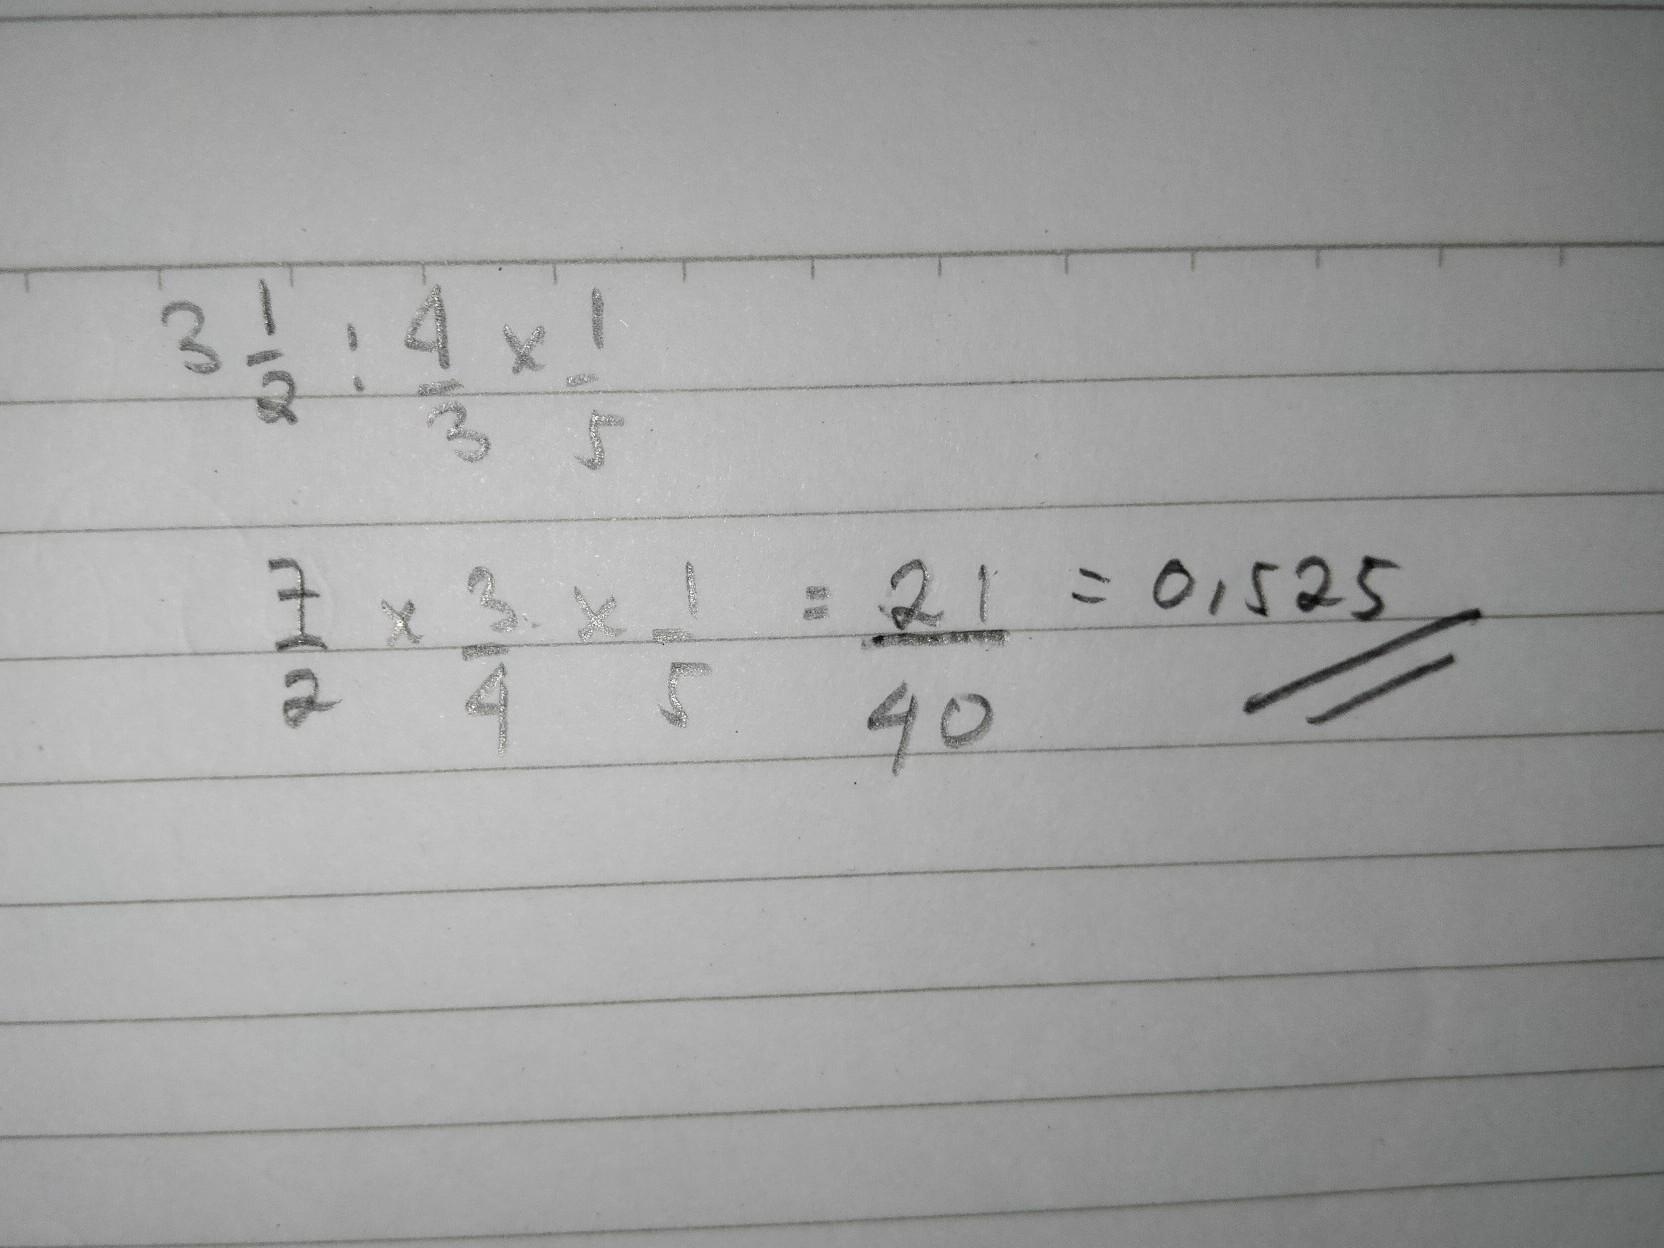 3 1/2 : 4/3 x 1/5
7/2 x 3/4 x 1/5 = 21/40 = 0,525